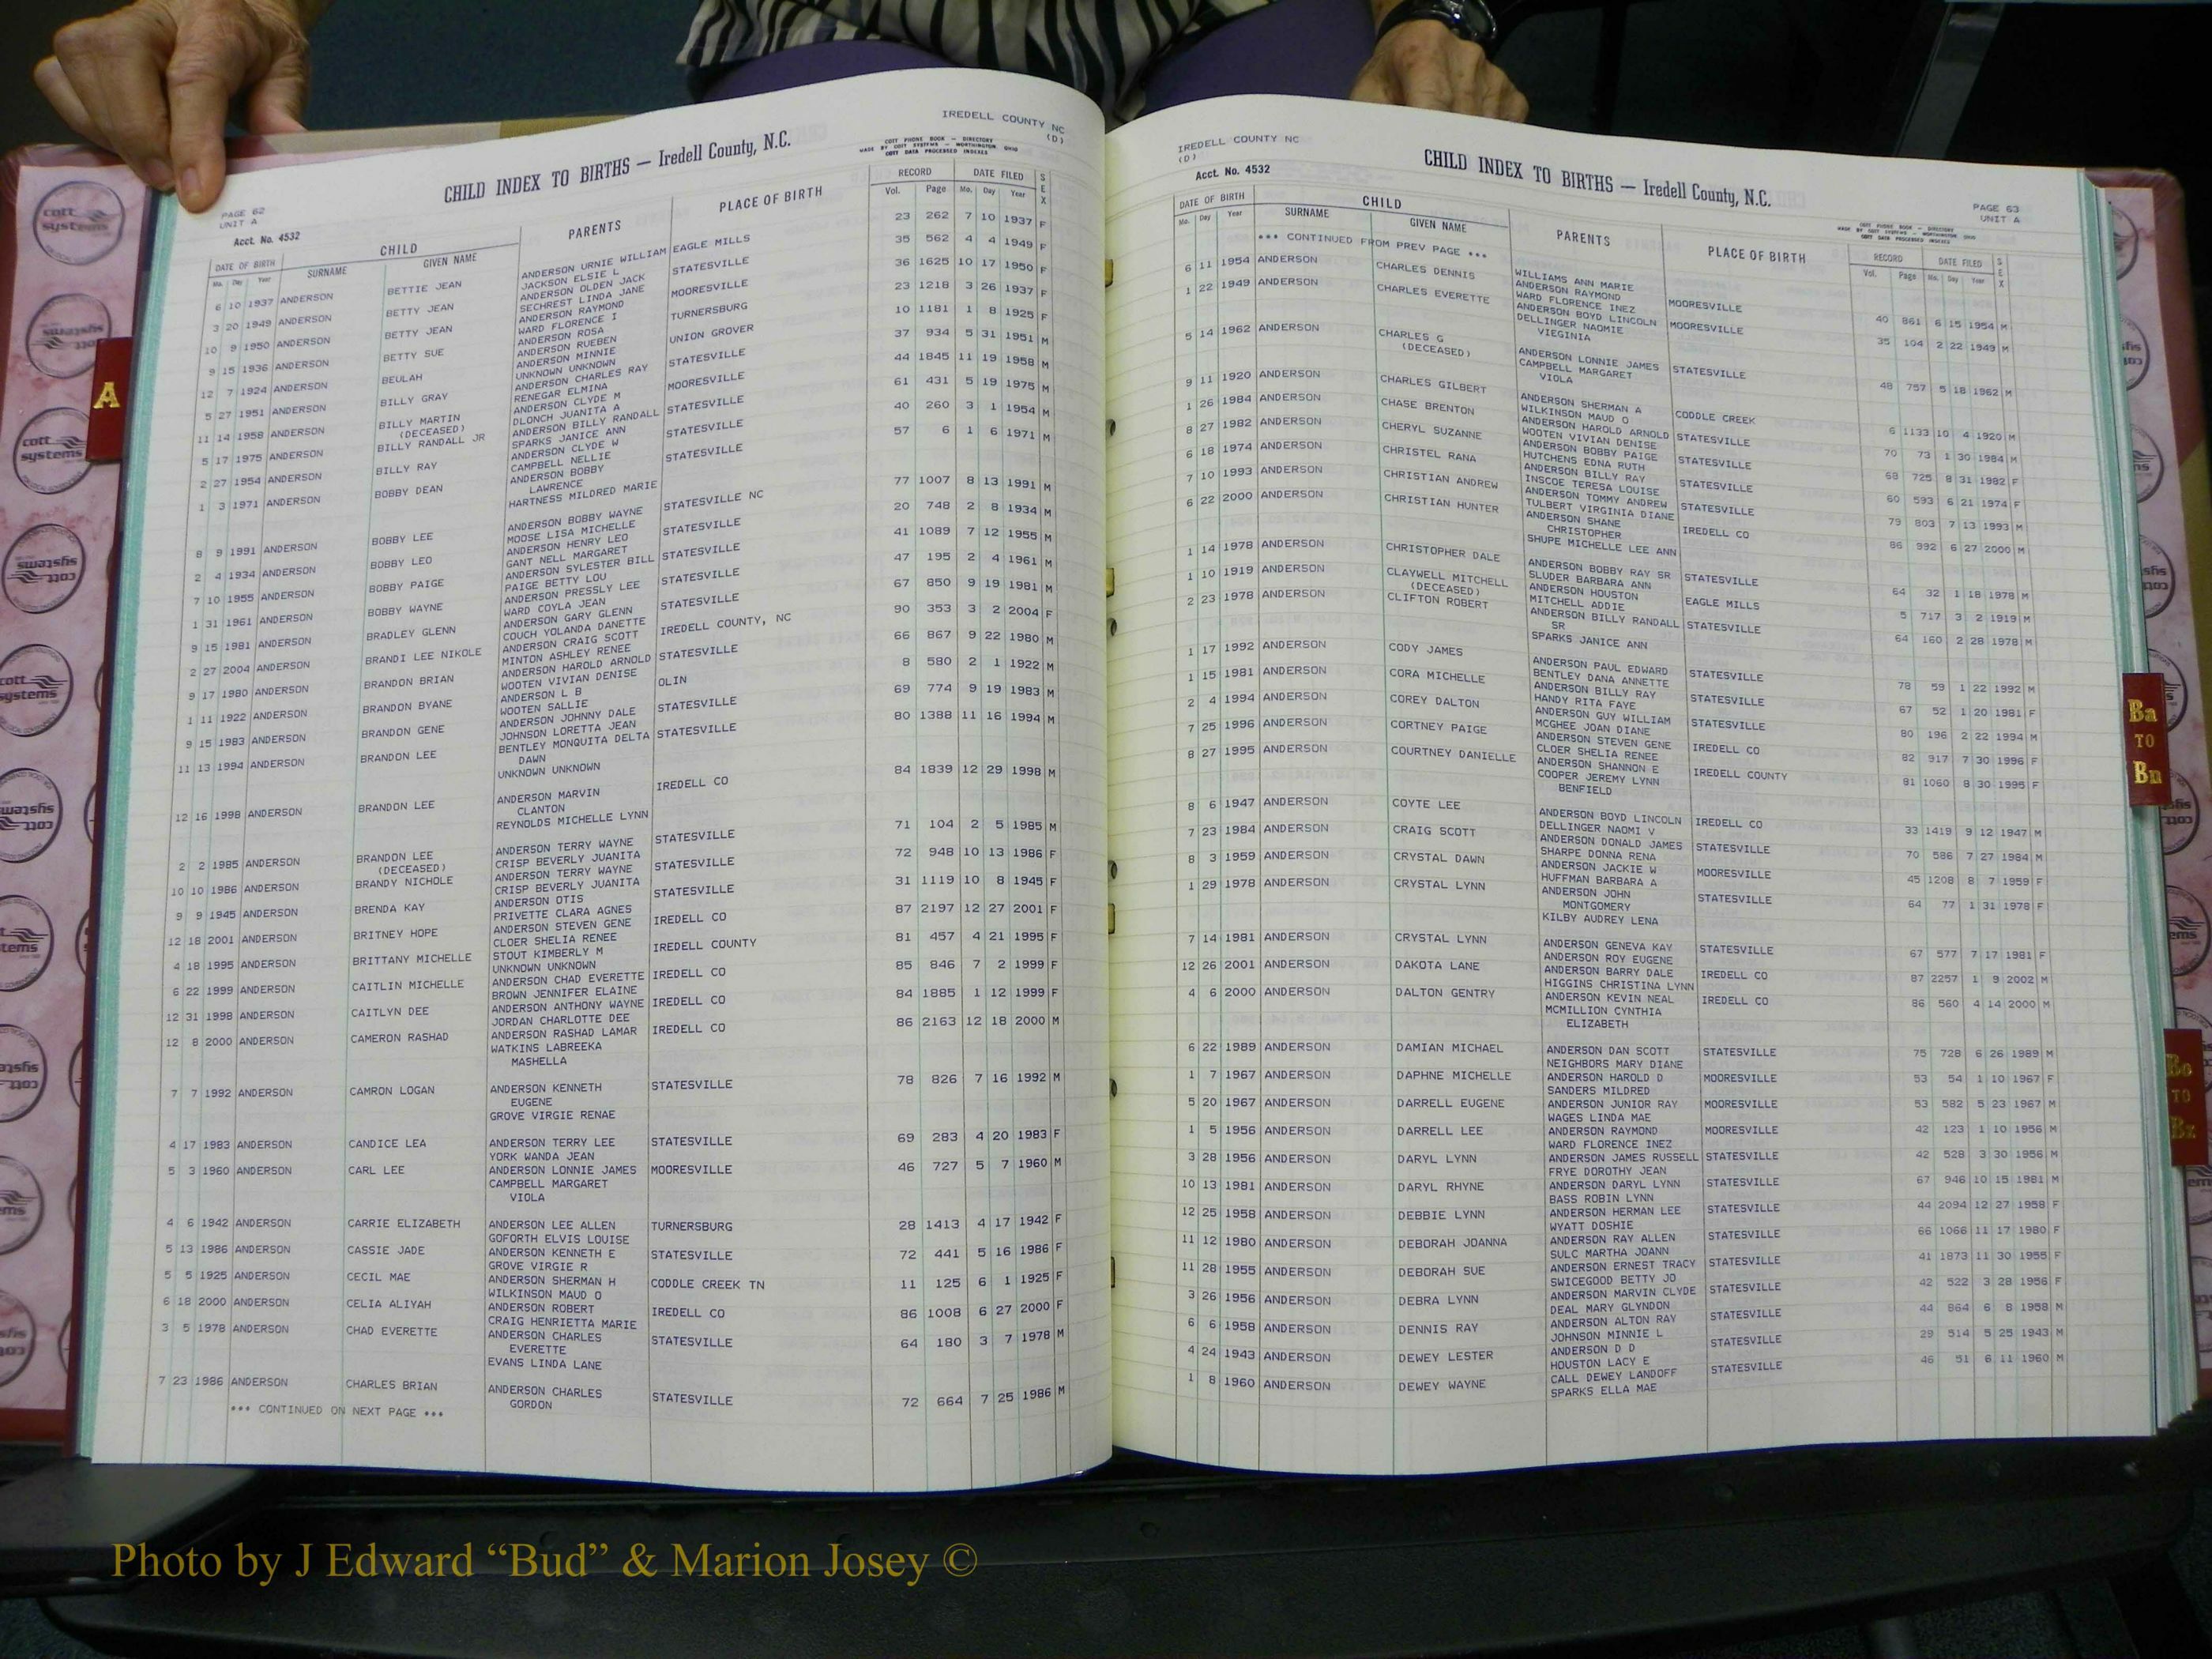 IREDELL COUNTY NC
(D)
CHILD INDEX TO BIRTHS — Iredell County, N.C.
COTT PHONE BOOK — DIRECTORY
MADE BY COTT SYSTEMS — WORTHINGTON, OHIO
COTT DATA PROCESSED INDEXES
PAGE 62
UNIT A
Acct. No. 4532
DATE OF BIRTH CHILD PARENTS PLACE OF BIRTH RECORD DATE FILED SEX
Mo. Day Year SURNAME GIVEN NAME Vol. Page Mo. Day Year
6 10 1937 ANDERSON BETTIE JEAN ANDERSON URNIE WILLIAM EAGLE MILLS 23 262 7 10 1937 F
JACKSON ELSIE L
3 20 1949 ANDERSON BETTY JEAN ANDERSON OLDEN JACK STATESVILLE 35 562 4 4 1949 F
SECHREST LINDA JANE
10 9 1950 ANDERSON BETTY JEAN ANDERSON RAYMOND MOORESVILLE 36 1625 10 17 1950 F
WARD FLORENCE I
9 15 1936 ANDERSON BETTY SUE ANDERSON ROSA TURNERSBURG 23 1218 3 26 1937 F
ANDERSON RUEBEN
12 7 1924 ANDERSON BEULAH ANDERSON MINNIE UNION GROVER 10 1181 1 8 1925 F
UNKNOWN UNKNOWN
5 27 1951 ANDERSON BILLY GRAY ANDERSON CHARLES RAY STATESVILLE 37 934 5 31 1951 M
RENEGAR ELMINA
11 14 1958 ANDERSON BILLY MARTIN ANDERSON CLYDE M MOORESVILLE 44 1845 11 19 1958 M
(DECEASED) DLONCH JUANITA A
5 17 1975 ANDERSON BILLY RANDALL JR ANDERSON BILLY RANDALL STATESVILLE 61 431 5 19 1975 M
SPARKS JANICE ANN
2 27 1954 ANDERSON BILLY RAY ANDERSON CLYDE W STATESVILLE 40 260 3 1 1954 M
CAMPBELL NELLIE
1 3 1971 ANDERSON BOBBY DEAN ANDERSON BOBBY STATESVILLE 57 6 1 6 1971 M
LAWRENCE
HARTNESS MILDRED MARIE
8 9 1991 ANDERSON BOBBY LEE ANDERSON BOBBY WAYNE STATESVILLE NC 77 1007 8 13 1991 M
MOOSE LISA MICHELLE
2 4 1934 ANDERSON BOBBY LEO ANDERSON HENRY LEO STATESVILLE 20 748 2 8 1934 M
GANT NELL MARGARET
7 10 1955 ANDERSON BOBBY PAIGE ANDERSON SYLESTER BILL STATESVILLE 41 1089 7 12 1955 M
PAIGE BETTY LOU
1 31 1961 ANDERSON BOBBY WAYNE ANDERSON PRESSLY LEE STATESVILLE 47 195 2 4 1961 M
WARD COYLA JEAN
9 15 1981 ANDERSON BRADLEY GLENN ANDERSON GARY GLENN STATESVILLE 67 850 9 19 1981 M
COUCH YOLANDA DANETTE
2 27 2004 ANDERSON BRANDI LEE NIKOLE ANDERSON CRAIG SCOTT IREDELL COUNTY, NC 90 353 3 2 2004 F
MINTON ASHLEY RENEE
9 17 1980 ANDERSON BRANDON BRIAN ANDERSON HAROLD ARNOLD STATESVILLE 66 867 9 22 1980 M
WOOTEN VIVIAN DENISE
1 11 1922 ANDERSON BRANDON BYANE ANDERSON L B OLIN 8 580 2 1 1922 M
WOOTEN SALLIE
9 15 1983 ANDERSON BRANDON GENE ANDERSON JOHNNY DALE STATESVILLE 69 774 9 19 1983 M
JOHNSON LORETTA JEAN
11 13 1994 ANDERSON BRANDON LEE BENTLEY MONQUITA DELTA STATESVILLE 80 1388 11 16 1994 M
DAWN
UNKNOWN UNKNOWN
12 16 1998 ANDERSON BRANDON LEE ANDERSON MARVIN IREDELL CO 84 1839 12 29 1998 M
CLANTON
REYNOLDS MICHELLE LYNN
2 2 1985 ANDERSON BRANDON LEE ANDERSON TERRY WAYNE STATESVILLE 71 104 2 5 1985 M
(DECEASED) CRISP BEVERLY JUANITA
10 10 1986 ANDERSON BRANDY NICHOLE ANDERSON TERRY WAYNE STATESVILLE 72 948 10 13 1986 F
CRISP BEVERLY JUANITA
9 9 1945 ANDERSON BRENDA KAY ANDERSON OTIS STATESVILLE 31 1119 10 8 1945 F
PRIVETTE CLARA AGNES
12 18 2001 ANDERSON BRITNEY HOPE ANDERSON STEVEN GENE IREDELL CO 87 2197 12 27 2001 F
CLOER SHELIA RENEE
4 18 1995 ANDERSON BRITTANY MICHELLE STOUT KIMBERLY M IREDELL COUNTY 81 457 4 21 1995 F
UNKNOWN UNKNOWN
6 22 1999 ANDERSON CAITLIN MICHELLE ANDERSON CHAD EVERETTE IREDELL CO 85 846 7 2 1999 F
BROWN JENNIFER ELAINE
12 31 1998 ANDERSON CAITLYN DEE ANDERSON ANTHONY WAYNE IREDELL CO 84 1885 1 12 1999 F
JORDAN CHARLOTTE DEE
12 8 2000 ANDERSON CAMERON RASHAD ANDERSON RASHAD LAMAR IREDELL CO 86 2163 12 18 2000 M
WATKINS LABREEKA
MASHELLA
7 7 1992 ANDERSON CAMRON LOGAN ANDERSON KENNETH STATESVILLE 78 826 7 16 1992 M
EUGENE
GROVE VIRGIE RENAE
4 17 1983 ANDERSON CANDICE LEA ANDERSON TERRY LEE STATESVILLE 69 283 4 20 1983 F
YORK WANDA JEAN
5 3 1960 ANDERSON CARL LEE ANDERSON LONNIE JAMES MOORESVILLE 46 727 5 7 1960 M
CAMPBELL MARGARET
VIOLA
4 6 1942 ANDERSON CARRIE ELIZABETH ANDERSON LEE ALLEN TURNERSBURG 28 1413 4 17 1942 F
GOFORTH ELVIS LOUISE
5 13 1986 ANDERSON CASSIE JADE ANDERSON KENNETH E STATESVILLE 72 441 5 16 1986 F
GROVE VIRGIE R
5 5 1925 ANDERSON CECIL MAE ANDERSON SHERMAN H CODDLE CREEK TN 11 125 6 1 1925 F
WILKINSON MAUD O
6 18 2000 ANDERSON CELIA ALIYAH ANDERSON ROBERT IREDELL CO 86 1008 6 27 2000 F
CRAIG HENRIETTA MARIE
3 5 1978 ANDERSON CHAD EVERETTE ANDERSON CHARLES STATESVILLE 64 180 3 7 1978 M
EVERETTE
EVANS LINDA LANE
7 23 1986 ANDERSON CHARLES BRIAN ANDERSON CHARLES STATESVILLE 72 664 7 25 1986 M
GORDON
*** CONTINUED ON NEXT PAGE ***
IREDELL COUNTY NC
(D)
CHILD INDEX TO BIRTHS — Iredell County, N.C.
Acct. No. 4532
PAGE 63
UNIT A
COTT PHONE BOOK — DIRECTORY
MADE BY COTT SYSTEMS — WORTHINGTON, OHIO
COTT DATA PROCESSED INDEXES
DATE OF BIRTH CHILD PARENTS PLACE OF BIRTH RECORD DATE FILED SEX
Mo. Day Year SURNAME GIVEN NAME Vol. Page Mo. Day Year
*** CONTINUED FROM PREV PAGE ***
WILLIAMS ANN MARIE
6 11 1954 ANDERSON CHARLES DENNIS ANDERSON RAYMOND MOORESVILLE 40 861 6 15 1954 M
WARD FLORENCE INEZ
1 22 1949 ANDERSON CHARLES EVERETTE ANDERSON BOYD LINCOLN MOORESVILLE 35 104 2 22 1949 M
DELLINGER NAOMIE
VIEGINIA
5 14 1962 ANDERSON CHARLES G ANDERSON LONNIE JAMES STATESVILLE 48 757 5 18 1962 M
(DECEASED) CAMPBELL MARGARET
VIOLA
9 11 1920 ANDERSON CHARLES GILBERT ANDERSON SHERMAN A CODDLE CREEK 6 1133 10 4 1920 M
WILKINSON MAUD O
1 26 1984 ANDERSON CHASE BRENTON ANDERSON HAROLD ARNOLD STATESVILLE 70 73 1 30 1984 M
WOOTEN VIVIAN DENISE
8 27 1982 ANDERSON CHERYL SUZANNE ANDERSON BOBBY PAIGE STATESVILLE 68 725 8 31 1982 F
HUTCHENS EDNA RUTH
6 18 1974 ANDERSON CHRISTEL RANA ANDERSON BILLY RAY STATESVILLE 60 593 6 21 1974 F
INSCOE TERESA LOUISE
7 10 1993 ANDERSON CHRISTIAN ANDREW ANDERSON TOMMY ANDREW STATESVILLE 79 803 7 13 1993 M
TULBERT VIRGINIA DIANE
6 22 2000 ANDERSON CHRISTIAN HUNTER ANDERSON SHANE IREDELL CO 86 992 6 27 2000 M
CHRISTOPHER
SHUPE MICHELLE LEE ANN
1 14 1978 ANDERSON CHRISTOPHER DALE ANDERSON BOBBY RAY SR STATESVILLE 64 32 1 18 1978 M
SLUDER BARBARA ANN
1 10 1919 ANDERSON CLAYWELL MITCHELL ANDERSON HOUSTON EAGLE MILLS 5 717 3 2 1919 M
(DECEASED) MITCHELL ADDIE
2 23 1978 ANDERSON CLIFTON ROBERT ANDERSON BILLY RANDALL STATESVILLE 64 160 2 28 1978 M
SR
SPARKS JANICE ANN
1 17 1992 ANDERSON CODY JAMES ANDERSON PAUL EDWARD STATESVILLE 78 59 1 22 1992 M
BENTLEY DANA ANNETTE
1 15 1981 ANDERSON CORA MICHELLE ANDERSON BILLY RAY STATESVILLE 67 52 1 20 1981 F
HANDY RITA FAYE
2 4 1994 ANDERSON COREY DALTON ANDERSON GUY WILLIAM STATESVILLE 80 196 2 22 1994 M
MCGHEE JOAN DIANE
7 25 1996 ANDERSON CORTNEY PAIGE ANDERSON STEVEN GENE IREDELL CO 82 917 7 30 1996 F
CLOER SHELIA RENEE
8 27 1995 ANDERSON COURTNEY DANIELLE ANDERSON SHANNON E IREDELL COUNTY 81 1060 8 30 1995 F
COOPER JEREMY LYNN
BENFIELD
8 6 1947 ANDERSON COYTE LEE ANDERSON BOYD LINCOLN IREDELL CO 33 1419 9 12 1947 M
DELLINGER NAOMI V
7 23 1984 ANDERSON CRAIG SCOTT ANDERSON DONALD JAMES STATESVILLE 70 586 7 27 1984 M
SHARPE DONNA RENA
8 3 1959 ANDERSON CRYSTAL DAWN ANDERSON JACKIE W MOORESVILLE 45 1208 8 7 1959 F
HUFFMAN BARBARA A
1 29 1978 ANDERSON CRYSTAL LYNN ANDERSON JOHN STATESVILLE 64 77 1 31 1978 F
MONTGOMERY
KILBY AUDREY LENA
7 14 1981 ANDERSON CRYSTAL LYNN ANDERSON GENEVA KAY STATESVILLE 67 577 7 17 1981 F
ANDERSON ROY EUGENE
12 26 2001 ANDERSON DAKOTA LANE ANDERSON BARRY DALE IREDELL CO 87 2257 1 9 2002 M
HIGGINS CHRISTINA LYNN
4 6 2000 ANDERSON DALTON GENTRY ANDERSON KEVIN NEAL IREDELL CO 86 560 4 14 2000 M
MCMILLION CYNTHIA
ELIZABETH
6 22 1989 ANDERSON DAMIAN MICHAEL ANDERSON DAN SCOTT STATESVILLE 75 728 6 26 1989 M
NEIGHBORS MARY DIANE
1 7 1967 ANDERSON DAPHNE MICHELLE ANDERSON HAROLD D MOORESVILLE 53 54 1 10 1967 F
SANDERS MILDRED
5 20 1967 ANDERSON DARRELL EUGENE ANDERSON JUNIOR RAY MOORESVILLE 53 582 5 23 1967 M
WAGES LINDA MAE
1 5 1956 ANDERSON DARRELL LEE ANDERSON RAYMOND MOORESVILLE 42 123 1 10 1956 M
WARD FLORENCE INEZ
3 28 1956 ANDERSON DARYL LYNN ANDERSON JAMES RUSSELL STATESVILLE 42 528 3 30 1956 M
FRYE DOROTHY JEAN
10 13 1981 ANDERSON DARYL RHYNE ANDERSON DARYL LYNN STATESVILLE 67 946 10 15 1981 M
BASS ROBIN LYNN
12 25 1958 ANDERSON DEBBIE LYNN ANDERSON HERMAN LEE STATESVILLE 44 2094 12 27 1958 F
WYATT DOSHIE
11 12 1980 ANDERSON DEBORAH JOANNA ANDERSON RAY ALLEN STATESVILLE 66 1066 11 17 1980 F
SULC MARTHA JOANN
11 28 1955 ANDERSON DEBORAH SUE ANDERSON ERNEST TRACY STATESVILLE 41 1873 11 30 1955 F
SWICEGOOD BETTY JO
3 26 1956 ANDERSON DEBRA LYNN ANDERSON MARVIN CLYDE STATESVILLE 42 522 3 28 1956 F
DEAL MARY GLYNDON
6 6 1958 ANDERSON DENNIS RAY ANDERSON ALTON RAY STATESVILLE 44 864 6 8 1958 M
JOHNSON MINNIE L
4 24 1943 ANDERSON DEWEY LESTER ANDERSON D D STATESVILLE 29 514 5 25 1943 M
HOUSTON LACY E
1 8 1960 ANDERSON DEWEY WAYNE CALL DEWEY LANDOFF STATESVILLE 46 51 6 11 1960 M
SPARKS ELLA MAE
A
Ba
TO
Bn
Bo
TO
Bz
cott
systems
Photo by J Edward “Bud” & Marion Josey ©